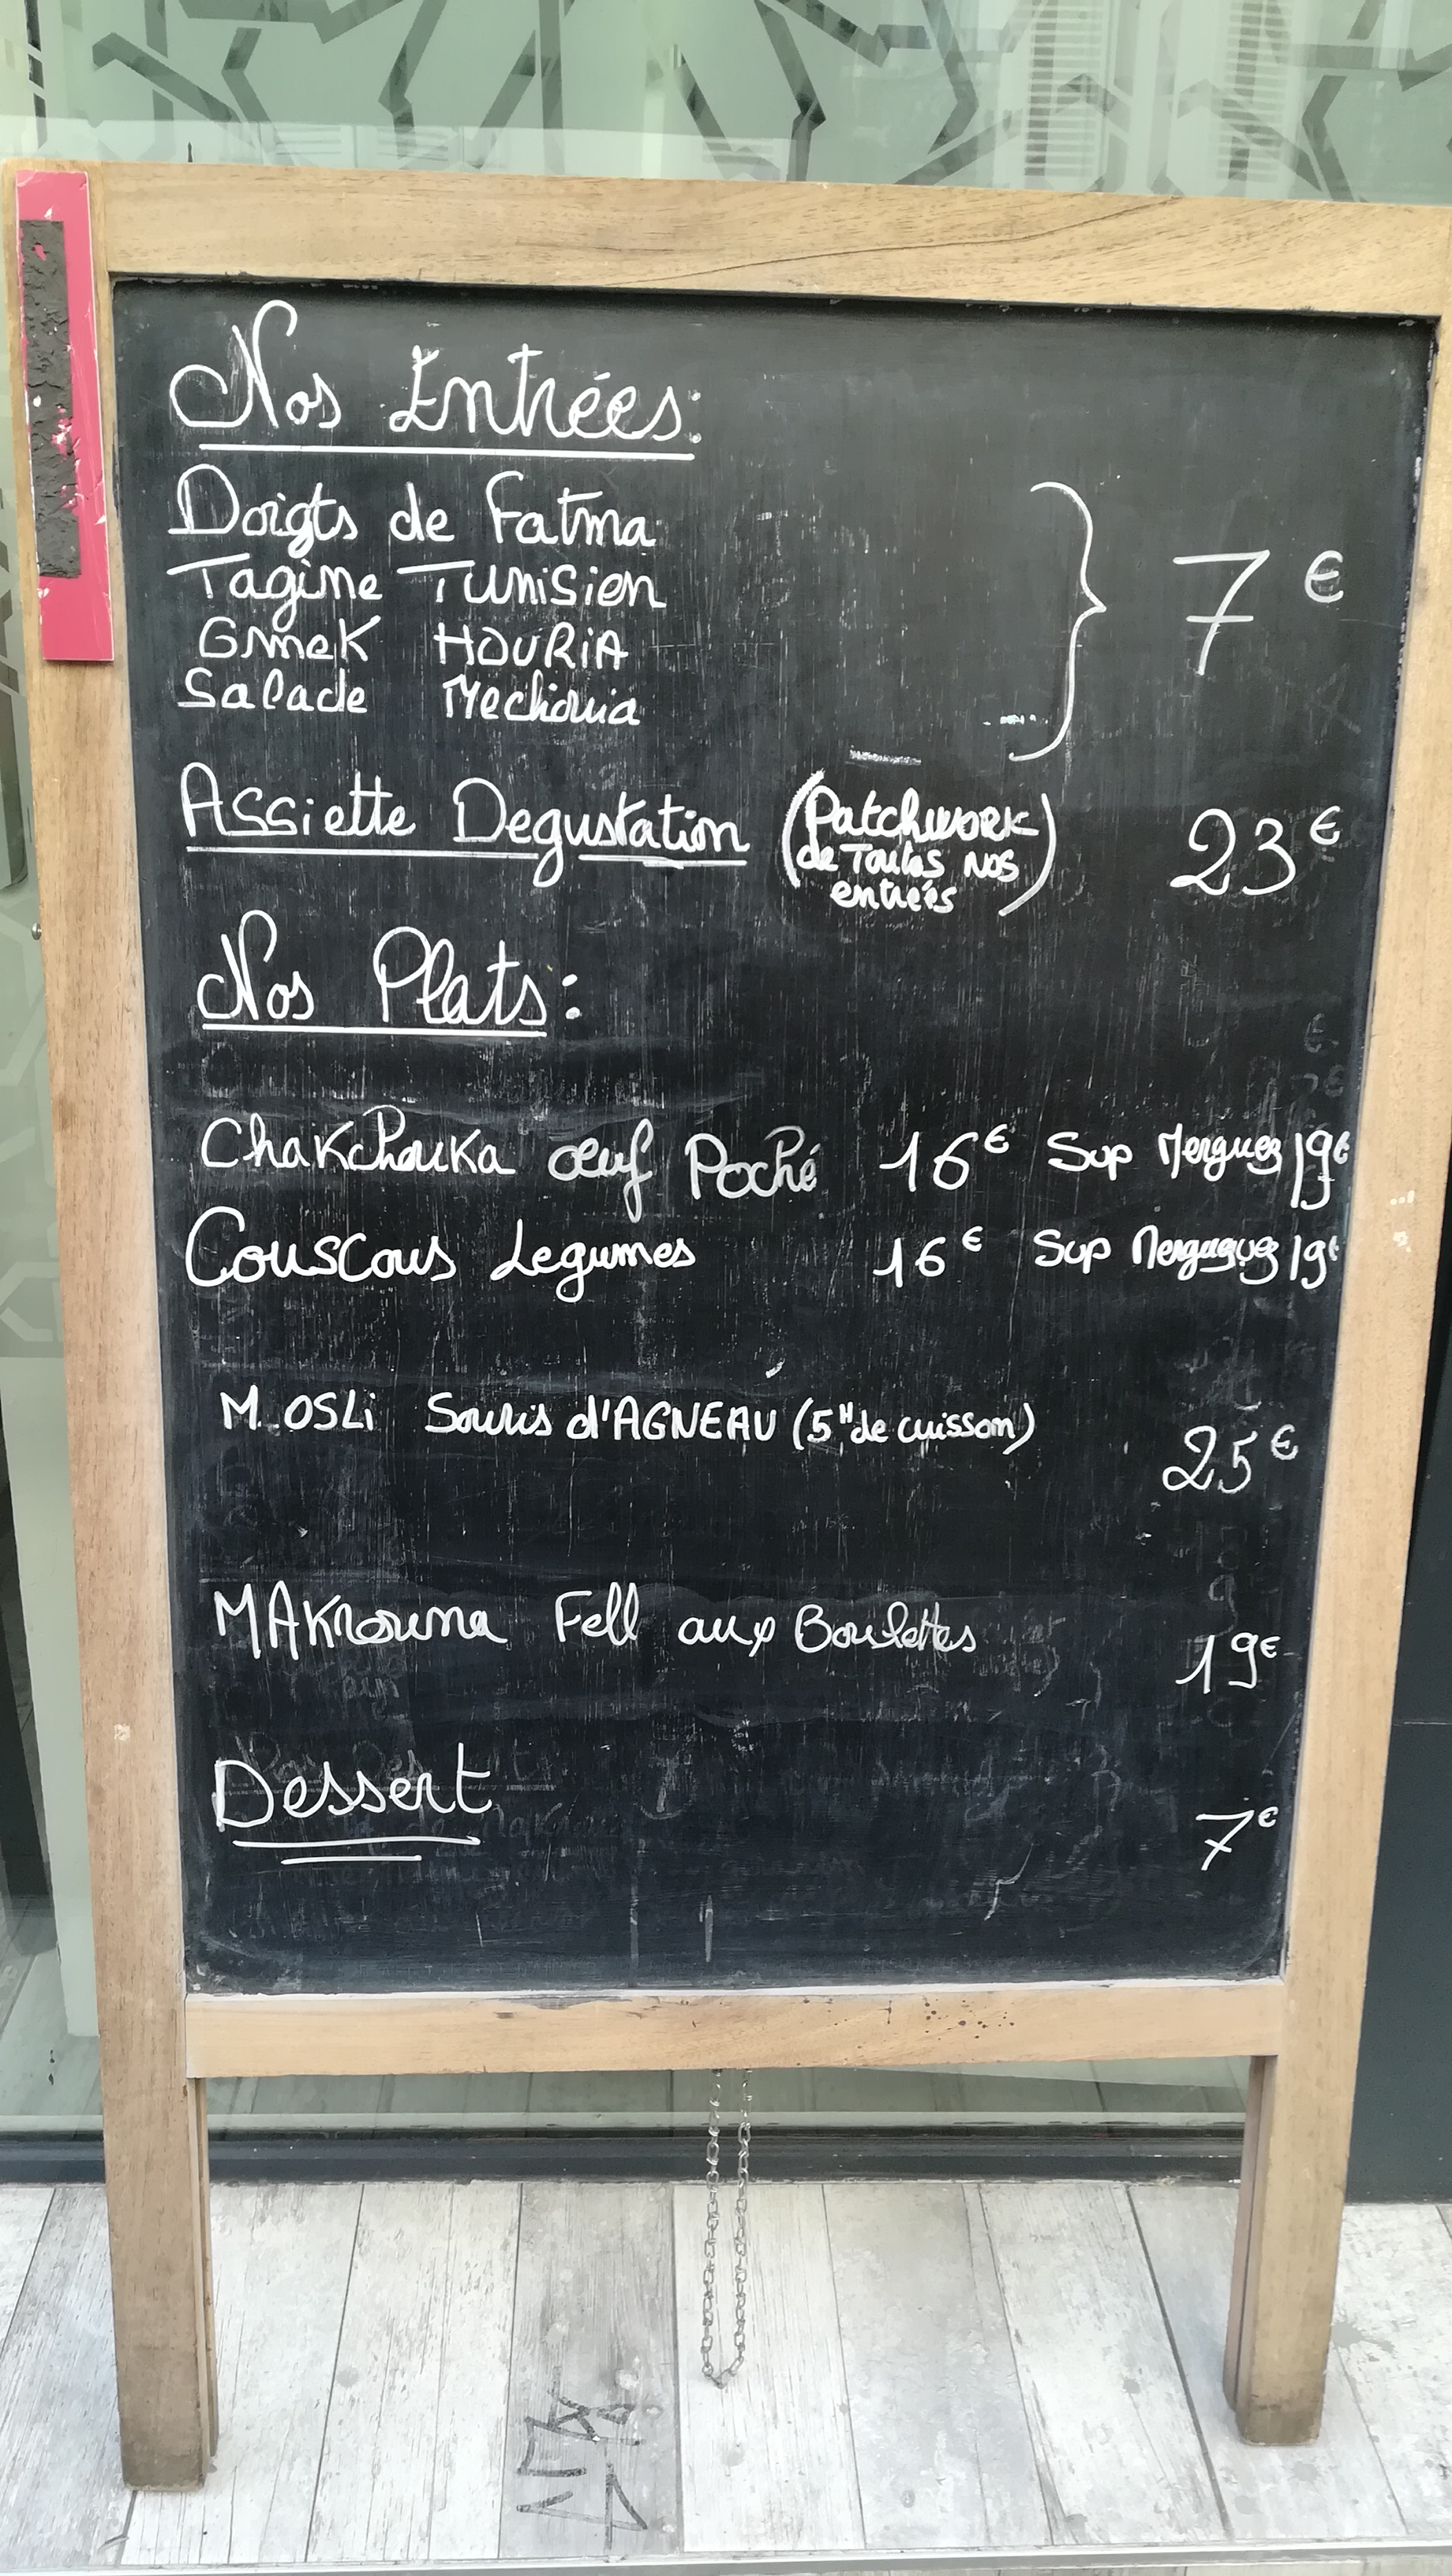 Nos Entrées:
Doigts de Fatma
Tagine Tunisien
Omek HOURIA
Salade Mechouia
7€
Assiette Degustation (Patchwork
de Toutes nos
entrées)
23€
Nos Plats:
Chakchouka œuf Poché 16€ Sup Merguez 19€
Couscous Legumes 16€ Sup Merguez 19€
M.OSLi Souris d'AGNEAU (5H de cuisson)
25€
MAKrouna Fell aux Boulettes
19€
Dessert
7€